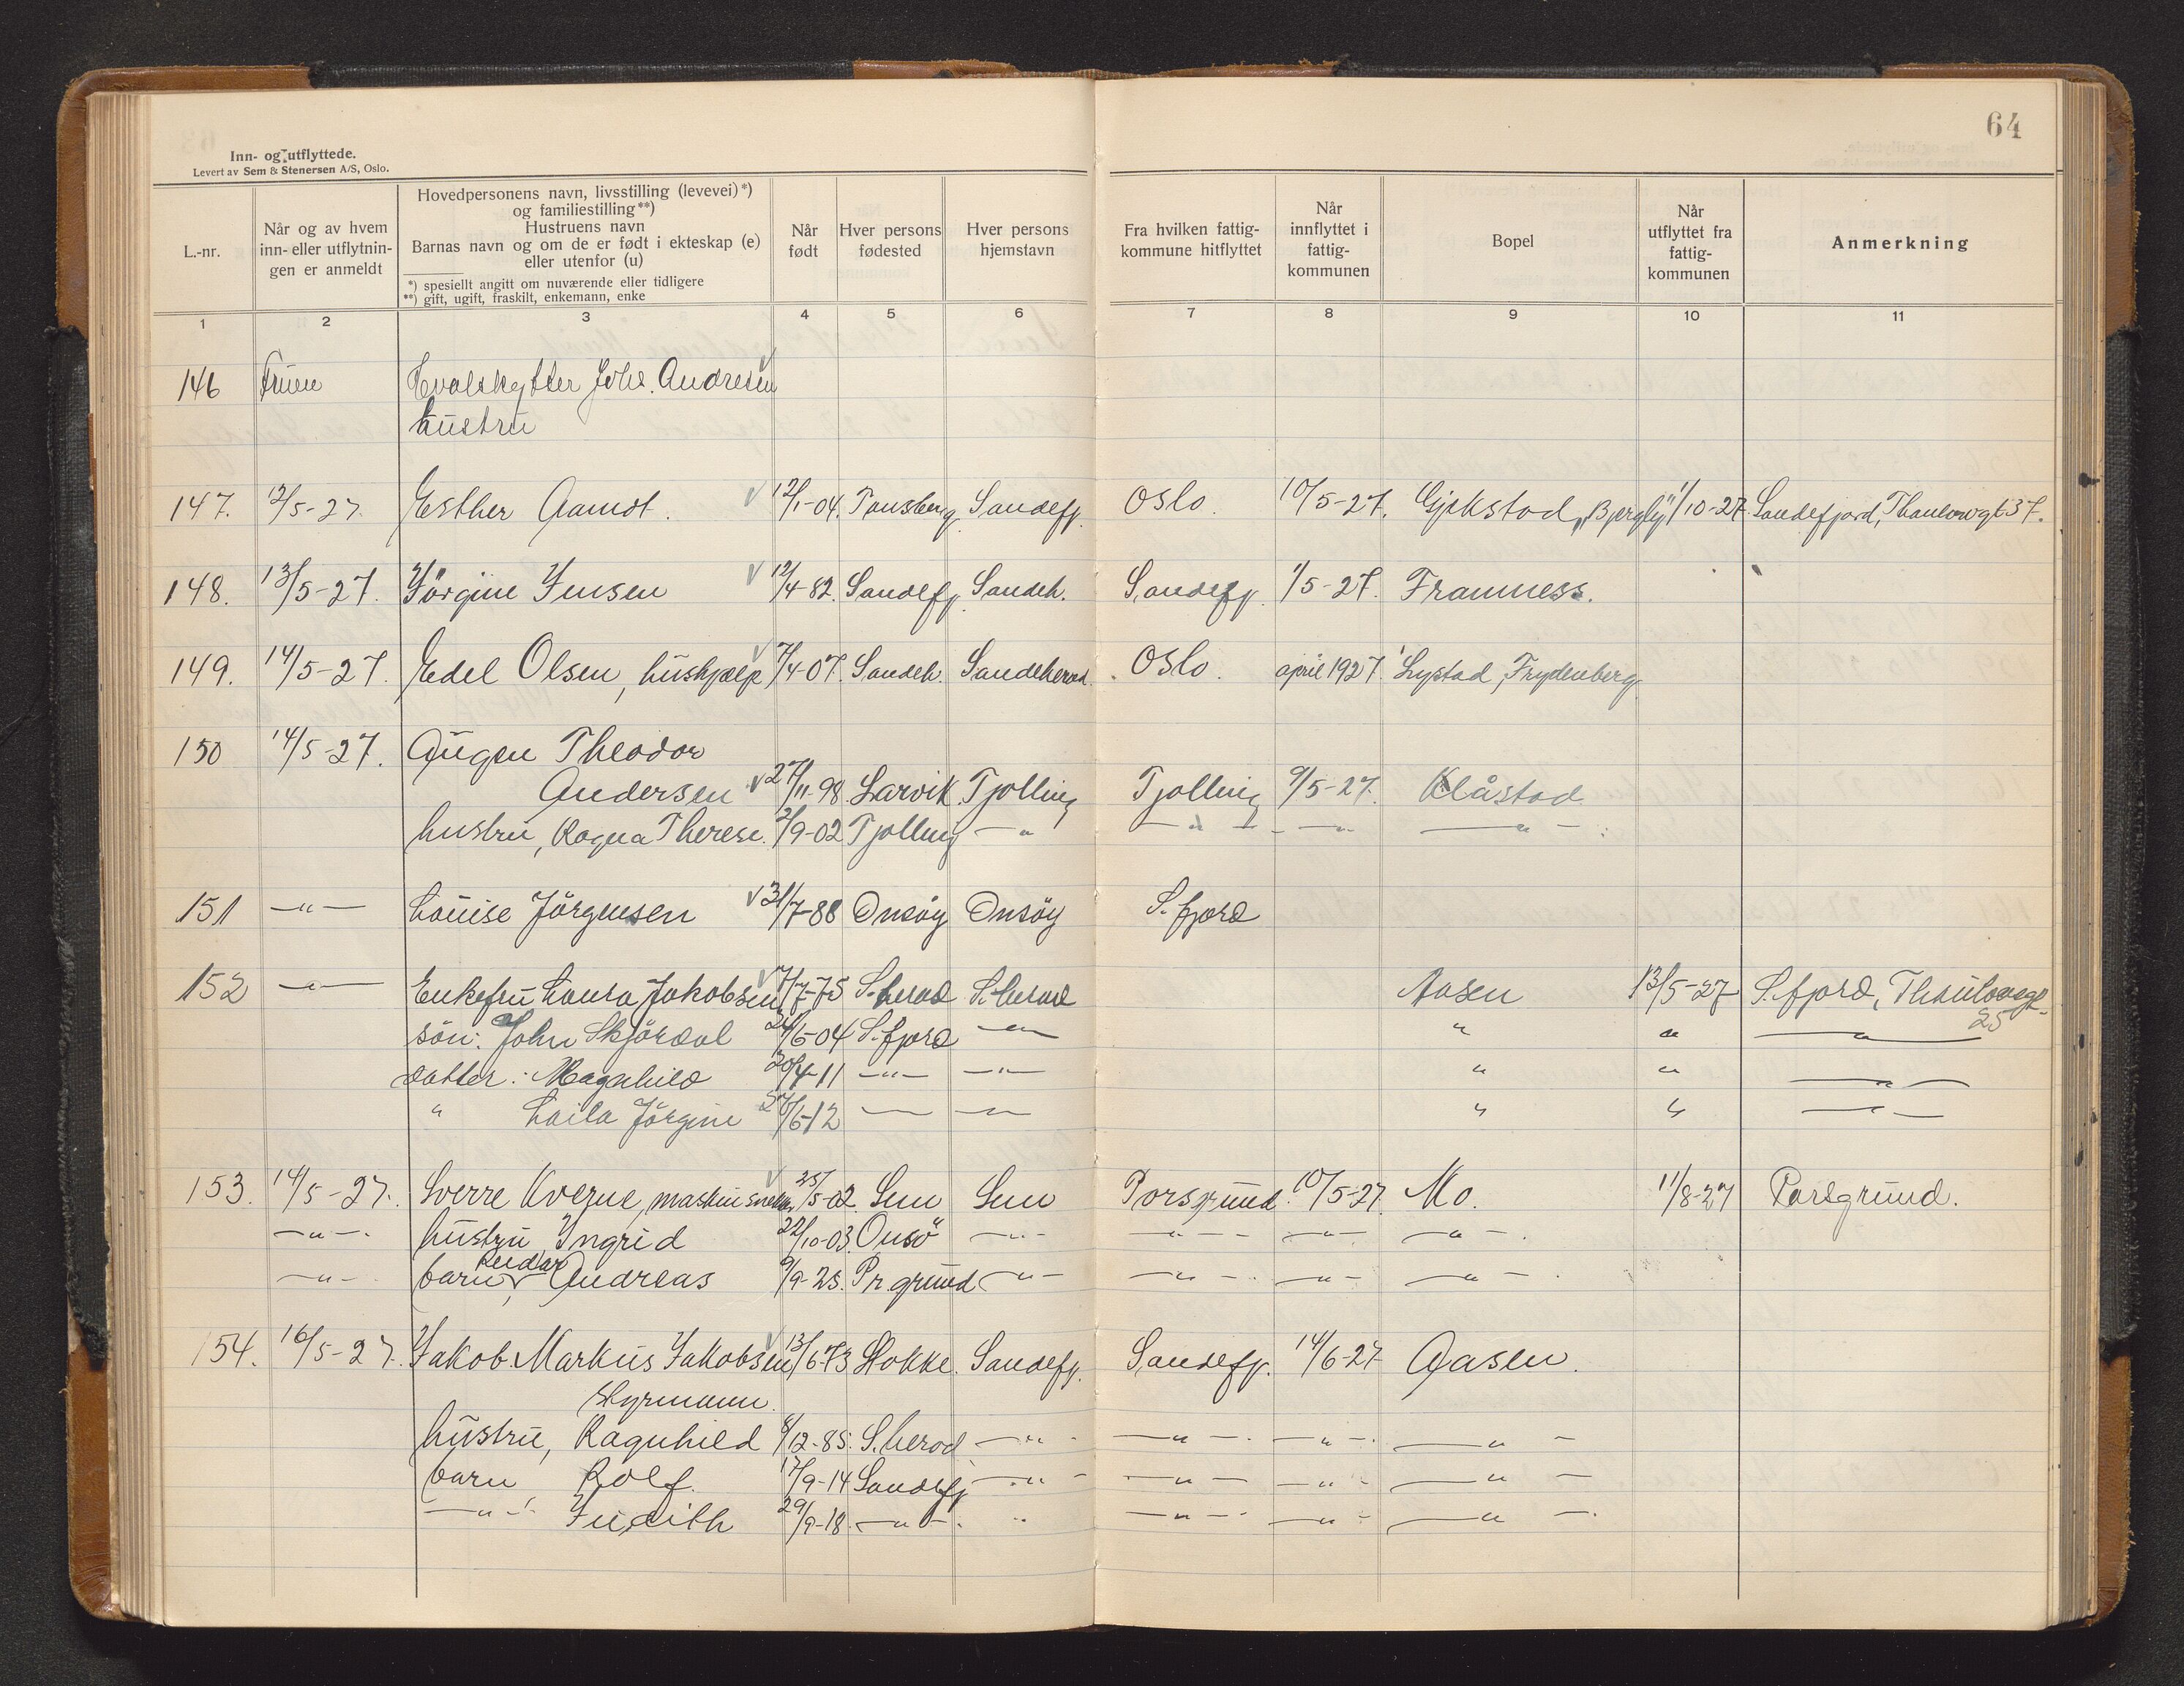 64
Inn- og utflyttede.
Levert av Sem & Stenersen A/S, Oslo.
L.-nr.
Når og av hvem
inn- eller utflytnin-
gen er anmeldt
Hovedpersonens navn, livsstilling (levevei)*)
og familiestilling**)
Hustruens navn
Barnas navn og om de er født i ekteskap (e)
eller utenfor (u)
*) spesiellt angitt om nuværende eller tidligere
**) gift, ugift, fraskilt, enkemann, enke
Når
født
Hver persons
fødested
Hver persons
hjemstavn
Fra hvilken fattig-
kommune hitflyttet
Når
innflyttet i
fattig-
kommunen
Bopel
Når
utflyttet fra
fattig-
kommunen
Anmerkning
1 2 3 4 5 6 7 8 9 10 11
146 Fruen Hvalskytter Johs. Andresen
hustru
147. 12/5-27 Esther Aamot. 12/1-04. Tønsberg Sandefj. Oslo. 10/5-27. Gjekstad, "Bjergly" 1/10-27 Sandefjord, Thaulowgt 37.
148. 13/5-27. Jörgine Jensen 12/4-82. Sandefj. Sandeh. Sandefj. 1/5-27. Framness.
149. 14/5-27. Edel Olsen, hushjælp 7/4-07. Sandeh. Sandeherad. Oslo. april 1927. Lystad, Frydenberg
150 14/5-27. Augen Theodor
Andersen 27/11-98 Larvik Tjølling Tjølling 9/5-27. Klåstad
hustru, Ragna Therese. 2/9-02 Tjølling —"— —"— —"— —"—
151 —"— Louise Jörgensen 31/7-88 Onsöy Onsöy S.fjord
152 —"— Enkefru Laura Jakobsen 7/7-75 S.herad S.herad Aasen 13/5-27 S.fjord, Thaulowgt.
25
sön: John Skjördal 24/6-04 S.fjord —"— " " —"—
datter: Magnhild 20/4-11 —"— —"— " " —"—
" Laila Jörgine 27/6-12 —"— —"— " " —"—
153. 14/5-27. Sverre Kverne, maskinsnekker 25/5-02. Sem Sem Porsgrund. 10/5-27. Mo. 11/8-27 Porsgrund.
—"—. hustru Ingrid 22/10-03. Onsö —"— —"— —"— —"—
Reidar
—"— barn, Andreas 9/9-25. Pr.grund —"— —"— —"— —"—
154. 16/5-27. Jakob Markus Jakobsen 13/6-73 Stokke. Sandefj. Sandefj. 14/6-27 Aasen.
styrmann.
hustru, Ragnhild 8/12-85. S.herad —"— —"— —"— —"—
barn Rolf. 17/9-14 Sandefj —"— —"— —"— —"—
—"— Judith 29/9-18. —"— " —"— —"— —"—